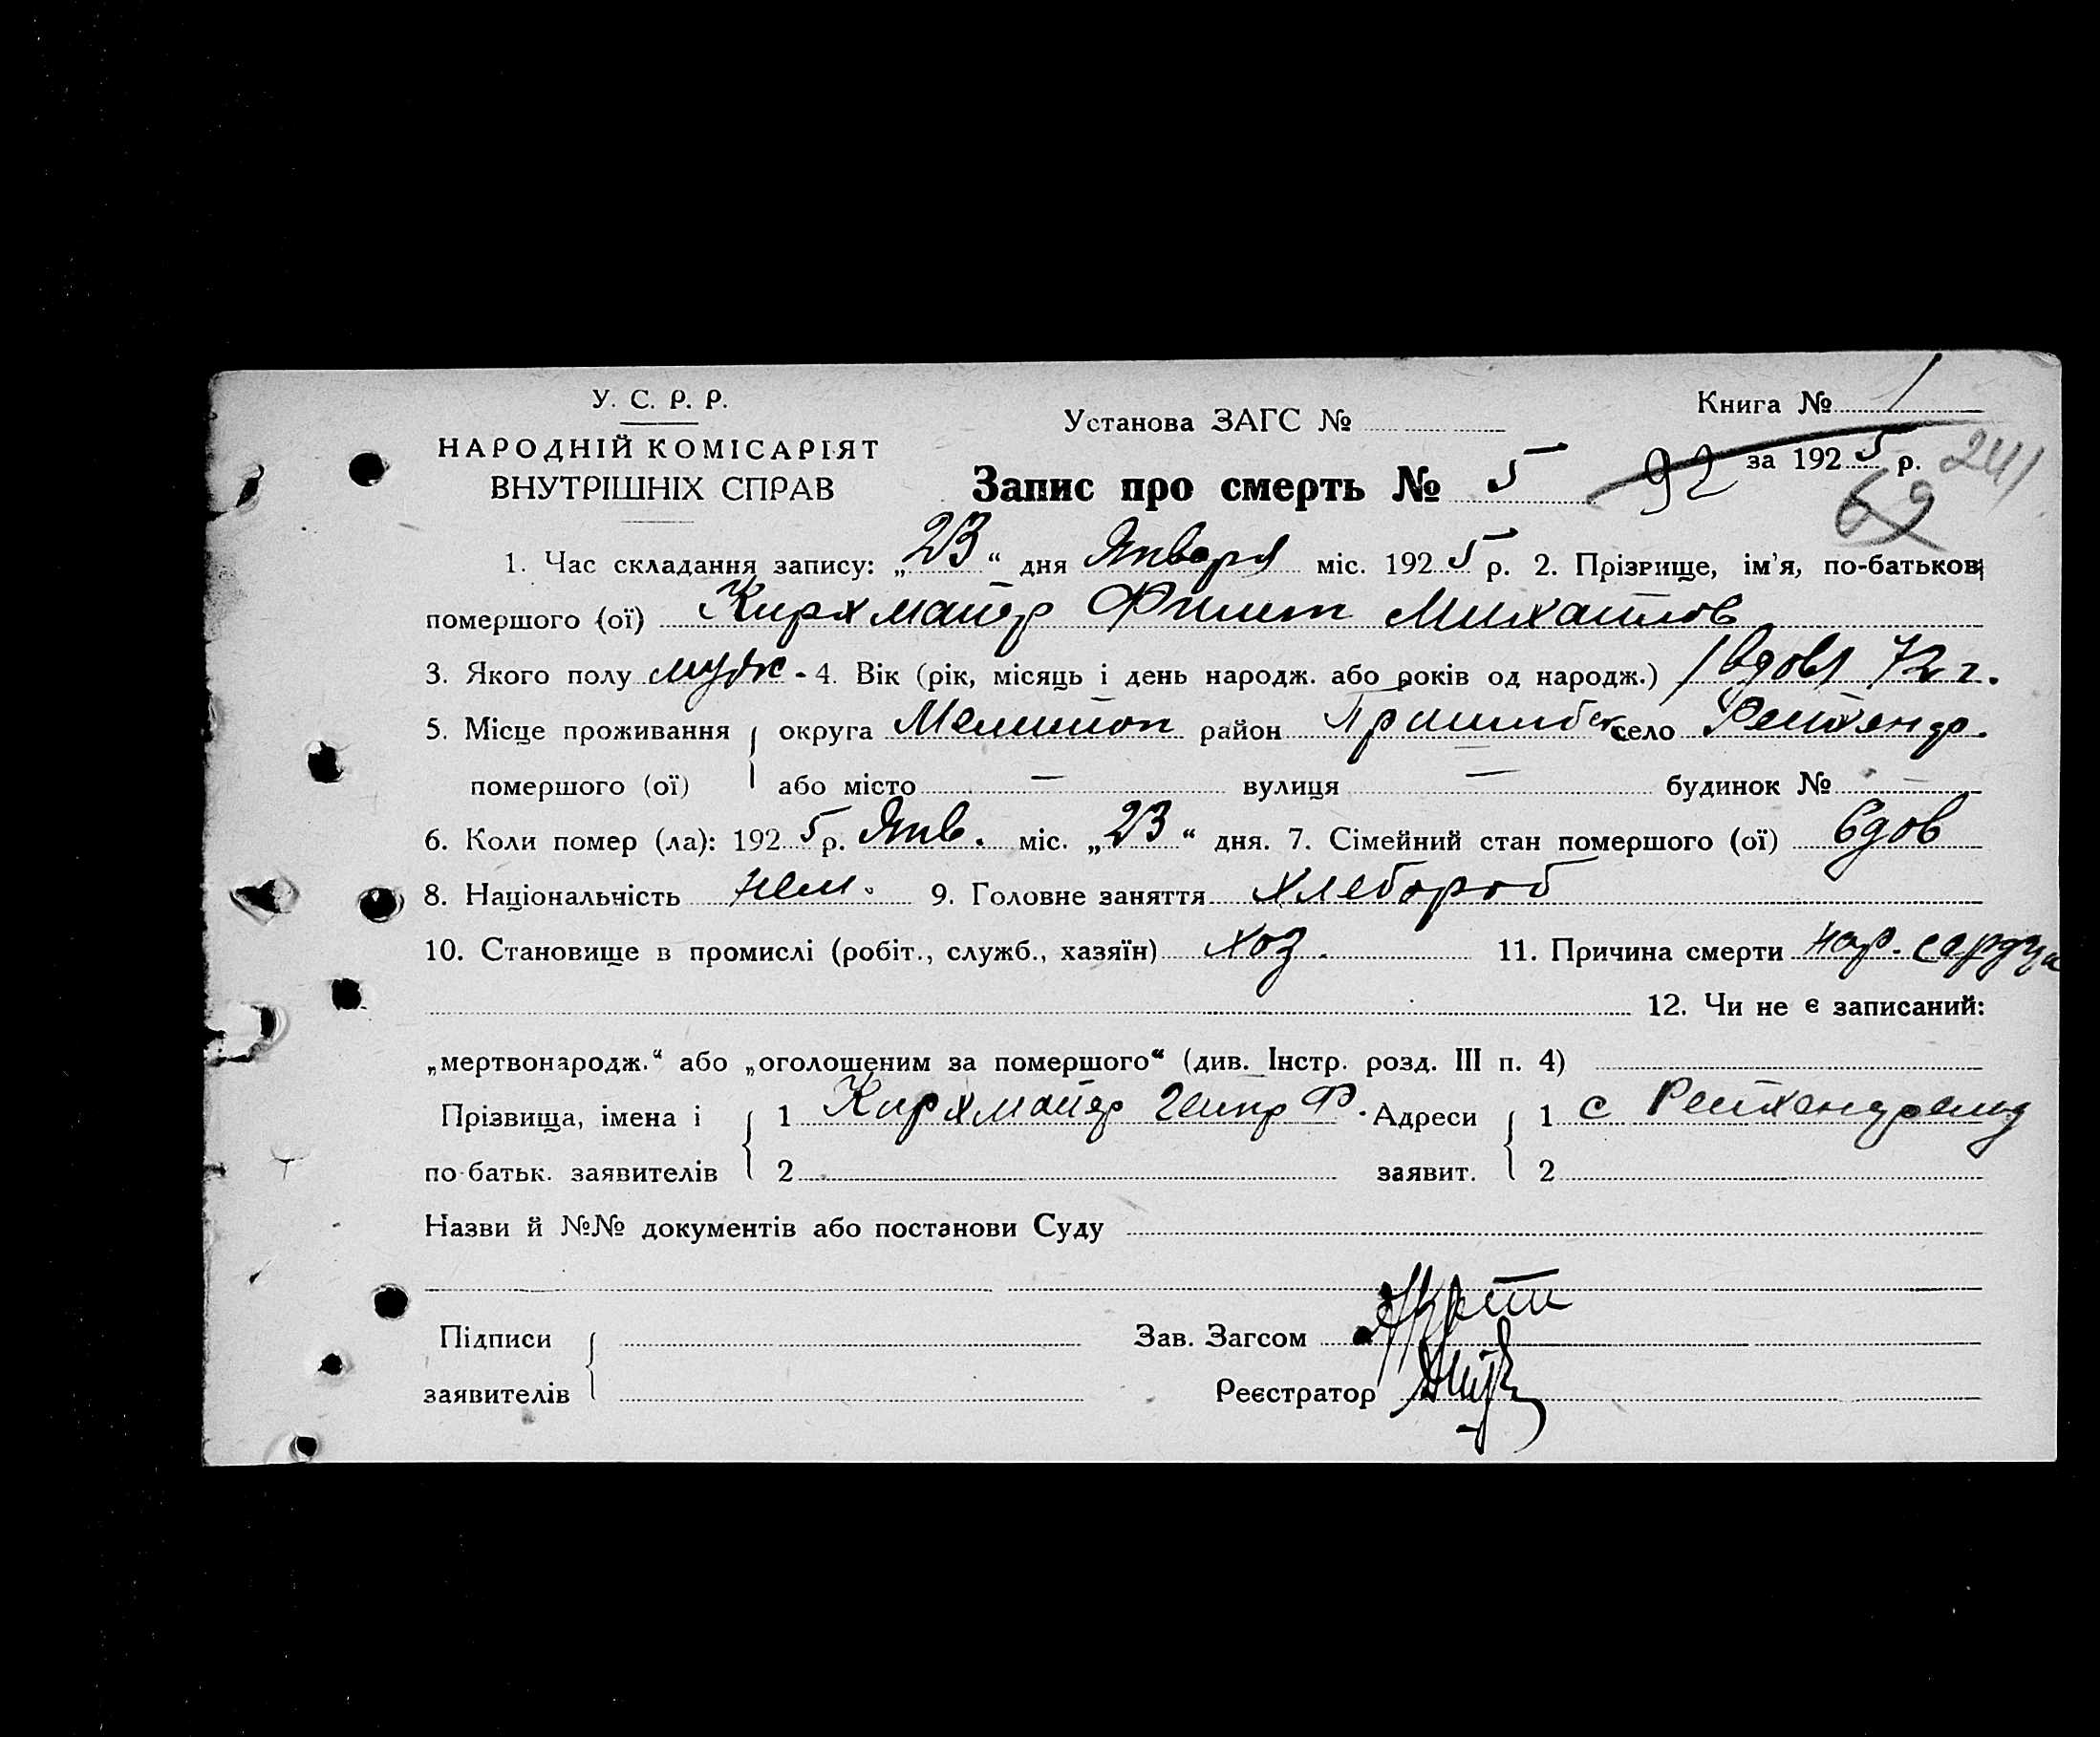 У. С. Р. Р.
НАРОДНІЙ КОМІСАРІЯТ
ВНУТРІШНІХ СПРАВ
Установа ЗАГС №
Книга № 1
за 1925 р. 241
Запис про смерть № 5 92
69
1. Час складання запису: „23“ дня Января міс. 1925 р. 2. Прізвище, ім'я, по-батькові
помершого (ої) Кирхмайер Филип Михайлов
3. Якого полу муж - 4. Вік (рік, місяць і день народж. або років од народж.) 72 г.
5. Місце проживання округа Мелитоп район Пришибск село Рейхенф.
помершого (ої) або місто — вулиця — будинок № —
6. Коли помер (ла): 1925 р. Янв. міс. „23“ дня. 7. Сімейний стан помершого (ої) вдов
8. Національність нем. 9. Головне заняття хлебороб
10. Становище в промислі (робіт., служб., хазяїн) хоз. 11. Причина смерти сердца
12. Чи не є записаний:
„мертвонародж.“ або „оголошеним за помершого“ (див. Інстр. розд. III п. 4)
Прізвища, імена і 1 Кирхмайер Гейнр Ф. Адреси 1 с Рейхенфельд
по-батьк. заявителів 2 заявит. 2
Назви й №№ документів або постанови Суду
Підписи Зав. Загсом
заявителів Реєстратор